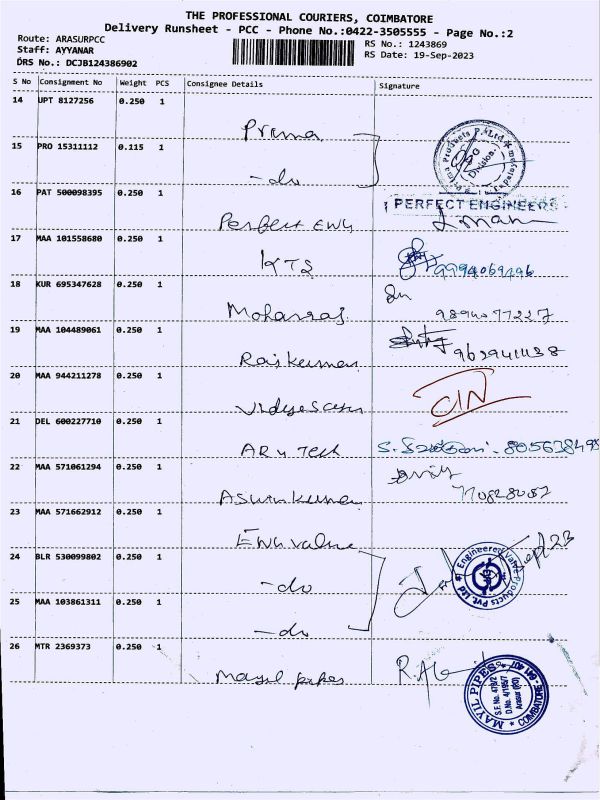 THE PROFESSIONAL COURIERS, COIMBATORE
Delivery Runsheet - PCC - Phone No.:0422-3505555 - Page No.:2
Route: ARASURPCC
RS No.: 1243869
Staff: AYYANAR
RS Date: 19-Sep-2023
DRS No.: DCJB124386902
S No Consignment No Weight PCS Consignee Details Signature
14 UPT 8127256 0.250 1
Prema
15 PRO 15311112 0.115 1
-do
16 PAT 500098395 0.250 1
PERFECT ENGINEERS
Perfect Engg
17 MAA 101558680 0.250 1
KTS
9994069196
18 KUR 695347628 0.250 1
Mohanraj
9894077227
19 MAA 104489061 0.250 1
Rajkumar
9629411138
20 MAA 944211278 0.250 1
21 DEL 600227710 0.250 1
Tech
22 MAA 571061294 0.250 1
Aswinkumar
23 MAA 571662912 0.250 1
Engg valve
24 BLR 530099802 0.250 1
Engineered Valve Products Pvt. Ltd
-do
25 MAA 103861311 0.250 1
-do
26 MTR 2369373 0.250 1
Mayil pipes
MAYIL PIPES
S.F.No. 479/2
D.No. 4/195/7
Arasur (PO)
COIMBATORE - 641 407